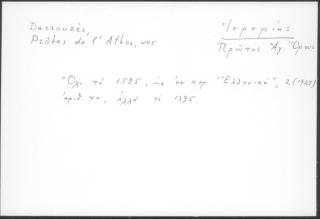 Darrouzès,
Prôtes de l'Athos, 445
Ἱερεμίας
Πρῶτος Ἁγ. Ὄρους
Ὄχι τὸ 1585, ὡς ἐν περ. "Ἑλληνικά", 2 (1929)
ἀριθ. 40, ἀλλὰ τὸ 1395.